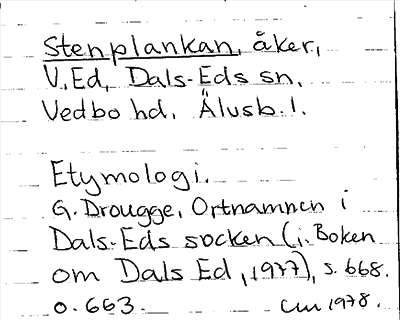 Stenplankan, åker,
V. Ed, Dals-Eds sn,
Vedbo hd, Älvsb. l.
Etymologi.
G. Drougge, Ortnamnen i
Dals-Eds socken (i: Boken
om Dals Ed, 1977), s. 668.
o. 663. CM 1978.